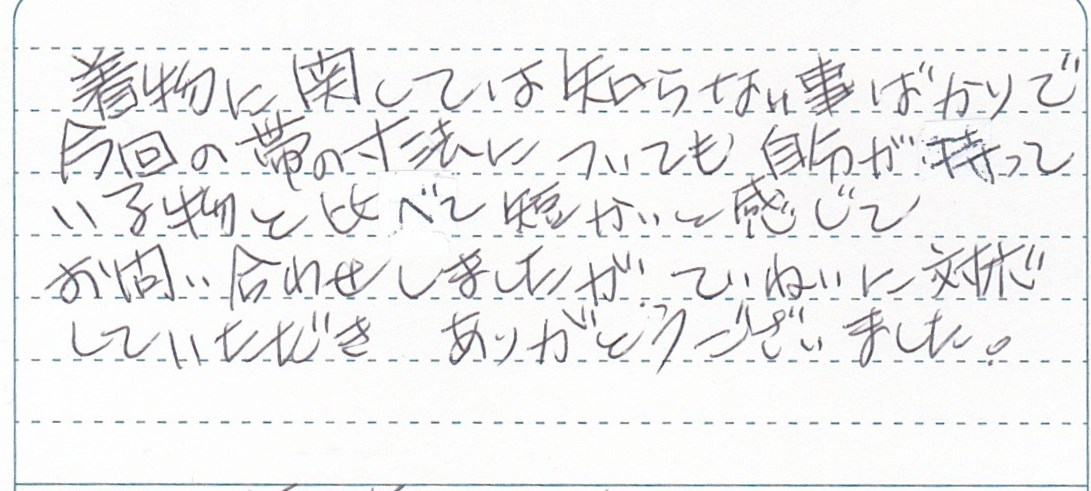 着物に関しては知らない事ばかりで
今回の帯の寸法についても自分が持って
いる物と比べて短かいと感じて
お問い合わせしましたが、ていねいに対応
していただき ありがとうございました。